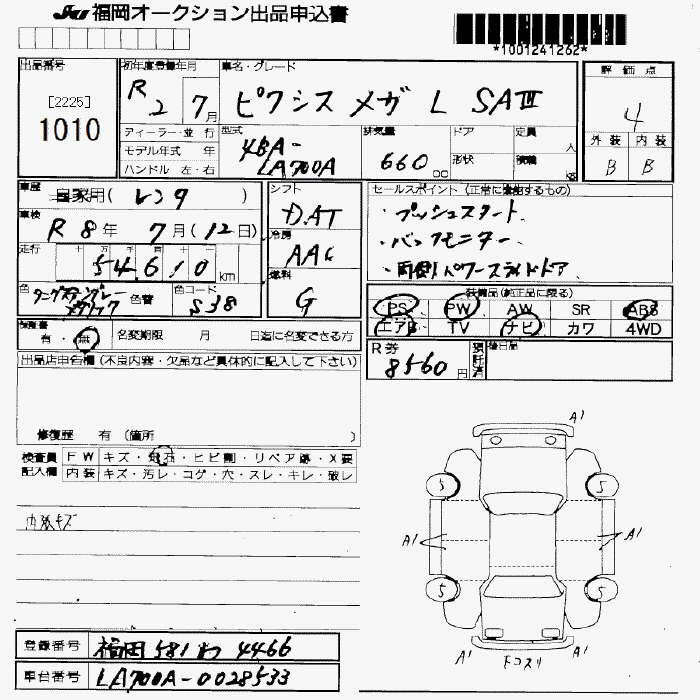 JU 福岡オークション出品申込書
*1001241262*
出品番号
[2225]
1010
初年度登録年月
R 2 7月
車名・グレード
ピクシス メガ L SAⅢ
評価点
4
外装 内装
B B
ディーラー・並行
モデル年式 年
ハンドル 左・右
型式
4BA-
LA700A
排気量
660 cc
ドア
形状
定員 人
積載 kg
車歴
自家用(レンタ)
車検
R 8年 7月(12日)
走行
十 万 千 百 十 一
54610 km
色
色替
色コード
S38
シフト
DAT
冷房
AAC
燃料
G
セールスポイント(正常に機能するもの)
・プッシュスタート.
・バックモニター.
・両側パワースライドドア.
装備品(純正品に限る)
PS PW AW SR ABS
エアB TV ナビ カワ 4WD
保証書
有・無
名変期限 月 日迄に名変できる方
R券
8560円
預託済
後日品
出品店申告欄(不良内容・欠品など具体的に記入して下さい)
修復歴 有(箇所 )
検査員 FW キズ・飛石・ヒビ割・リペア跡・X要
記入欄 内装 キズ・汚レ・コゲ・穴・スレ・キレ・破レ
内張キズ
A1
5 5
A1 A1
5 5
A1 下コスリ A1
登録番号 福岡 581 わ 4466
車台番号 LA700A-0028533